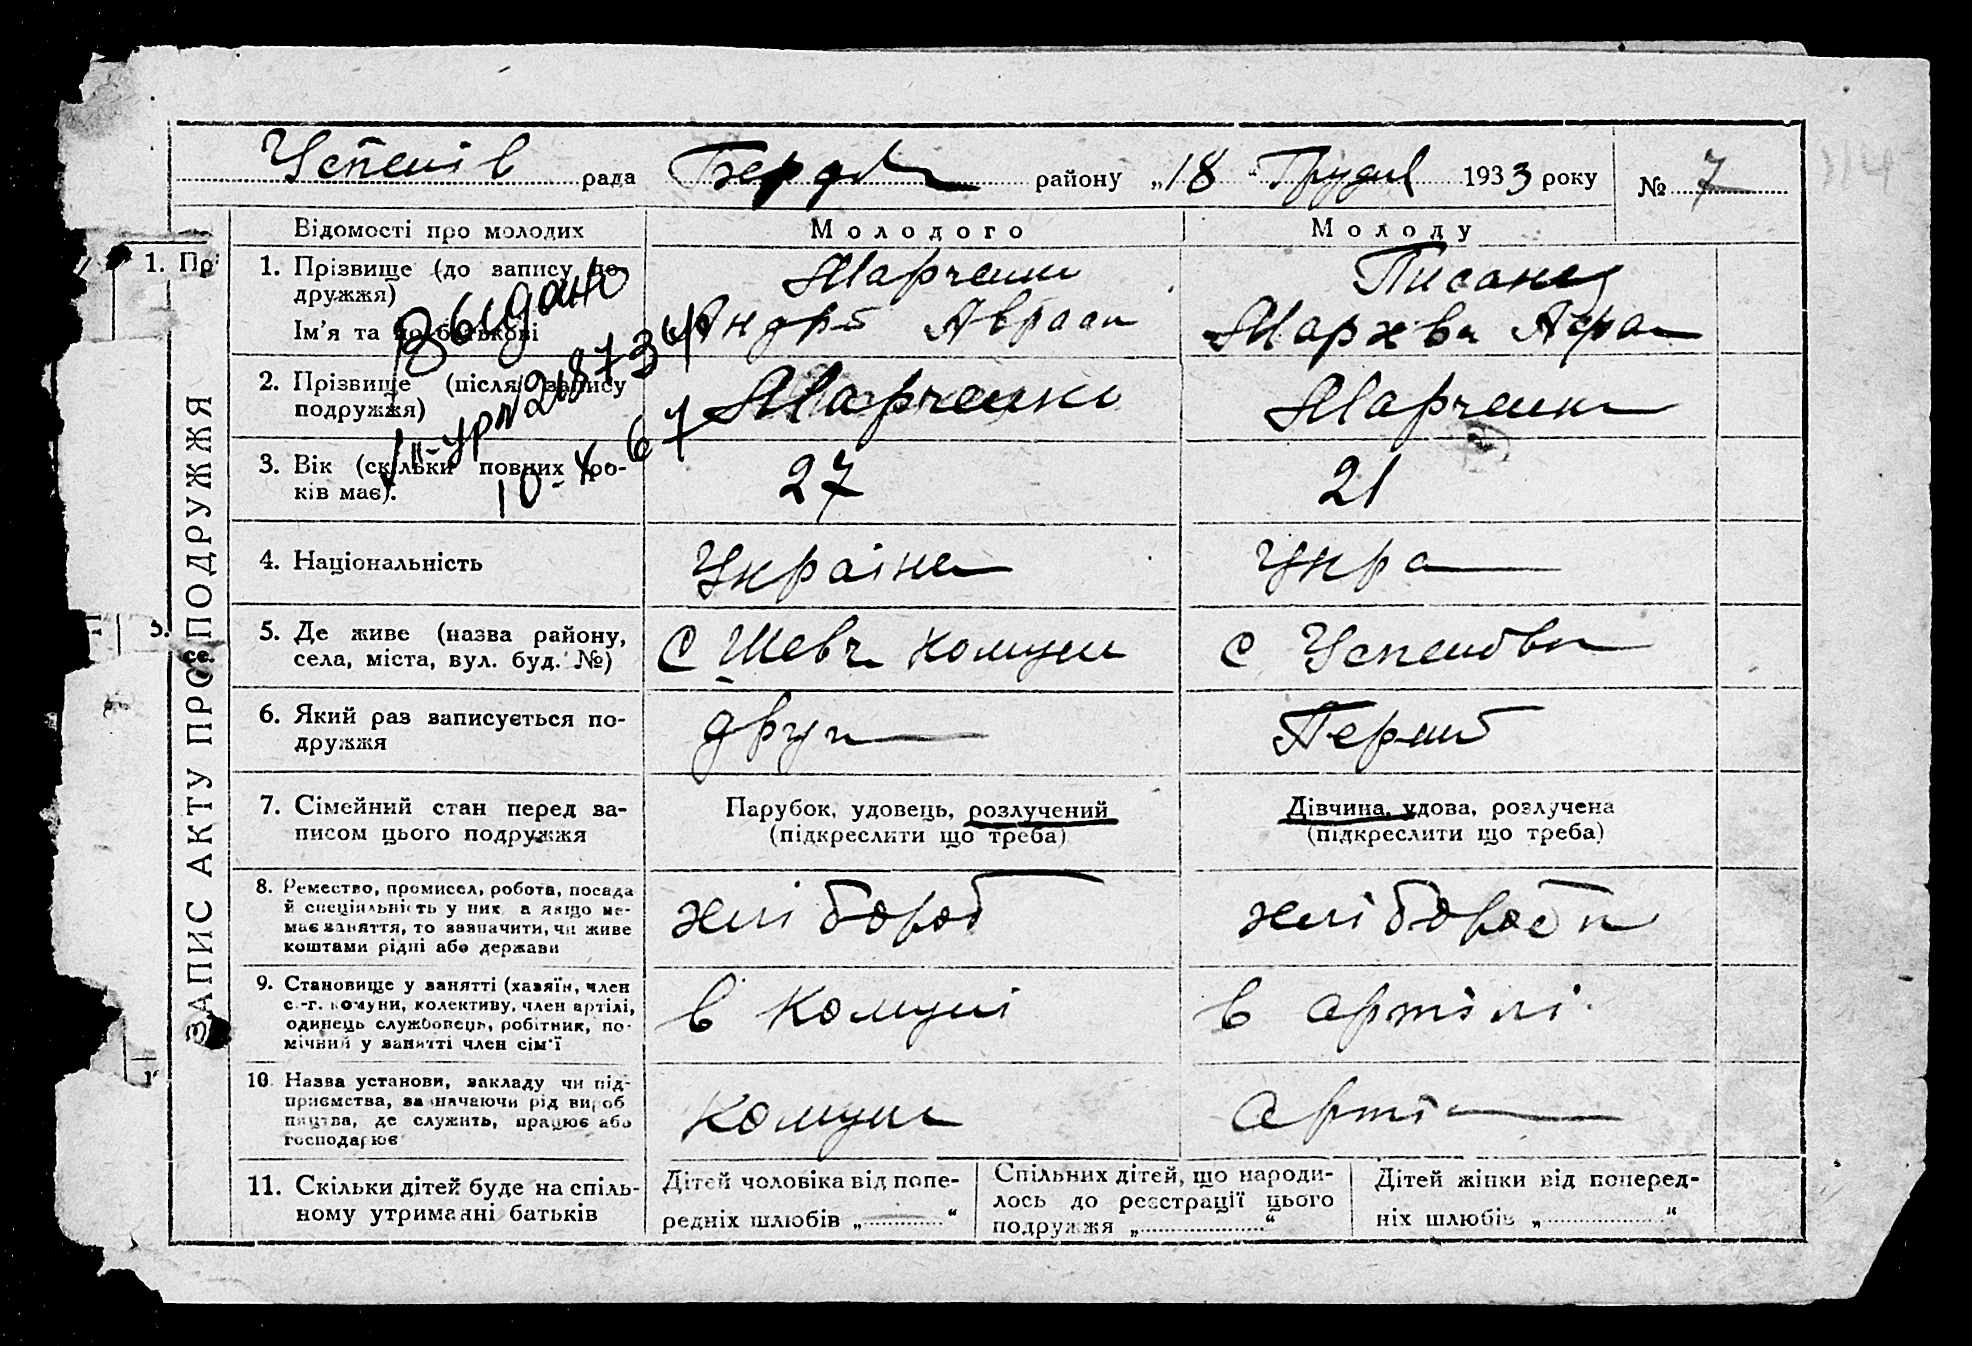 Успенів рада Бердян району „18“ Грудня 1933 року № 7
Відомості про молодих Молодого Молоду
1. Пр
1. Прізвище (до запису по-
дружжя)
Марченко Писана
Ім'я та по батькові
Андрій Авраам
Выдано
2. Прізвище (після запису
подружжя)
Марченко Марченко
3. Вік (скільки повних ро-
ків має).
27 21
4. Національність Україне Укра
5. Де живе (назва району,
села, міста, вул. буд. №)
С Шевч комуни с Успеновка
6. Який раз записується по-
дружжя
други Перший
7. Сімейний стан перед за-
писом цього подружжя
Парубок, удовець, розлучений
(підкреслити що треба)
Дівчина, удова, розлучена
(підкреслити що треба)
8. Ремество, промисел, робота, посада
й спеціяльність у них, а якщо не-
має заняття, то зазначити, чи живе
коштами рідні або держави
хлібороб хлібороб
9. Становище у занятті (хазяїн, член
с.-г. комуни, колективу, член артілі,
одинець службовець, робітник, по-
мічний у занятті член сім'ї
в комуні в артілі
10. Назва установи, закладу чи під-
приємства, зазначаючи рід вироб
ництва, де служить, працює або
господарює
комуни Арті
11. Скільки дітей буде на спіль-
ному утриманні батьків
Дітей чоловіка від попе-
редніх шлюбів „ “
Спільних дітей, що народи-
лось до реєстрації цього
подружжя „ “
Дітей жінки від поперед-
ніх шлюбів „ “
ЗАПИС АКТУ ПРО ПОДРУЖЖЯ